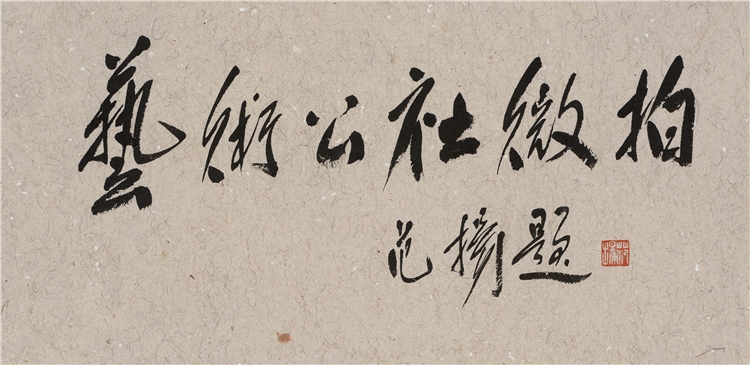 藝術公社微拍
范揚題